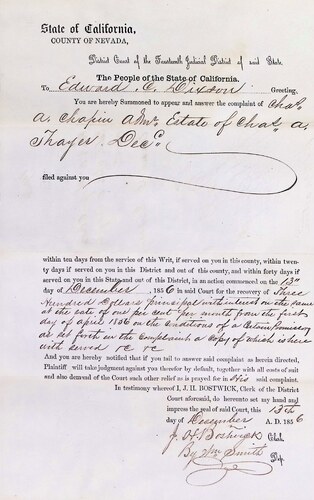 State of California,
COUNTY OF NEVADA,
District Court of the Fourteenth Judicial District of said State.
The People of the State of California.
To Edward C. Dixson Greeting,
You are hereby Summoned to appear and answer the complaint of Chas.
A. Chapin Admr. Estate of Chas. A.
Thayer Decd.
filed against you
within ten days from the service of this Writ, if served on you in this county, within twen-
ty days if served on you in this District and out of this county, and within forty days if
served on you in this State and out of this District, in an action commenced on the 13th
day of December, 1856 in said Court for the recovery of Three
Hundred Dollars principal with interest on the same
at the rate of one per cent per month from the first
day of April 1856 on the conditions of a Certain Promissory
as set forth in the Complaint a Copy of which is here
with served &c &c
And you are hereby notified that if you fail to answer said complaint as herein directed,
Plaintiff will take judgment against you therefor by default, together with all costs of suit
and also demand of the Court such other relief as is prayed for in His said complaint.
In testimony whereof I, J. H. BOSTWICK, Clerk of the District
Court aforesaid, do hereto set my hand and
impress the seal of said Court, this 13th
day of December A. D. 1856
J. H. Bostwick Clerk
By Wm Smith Dep